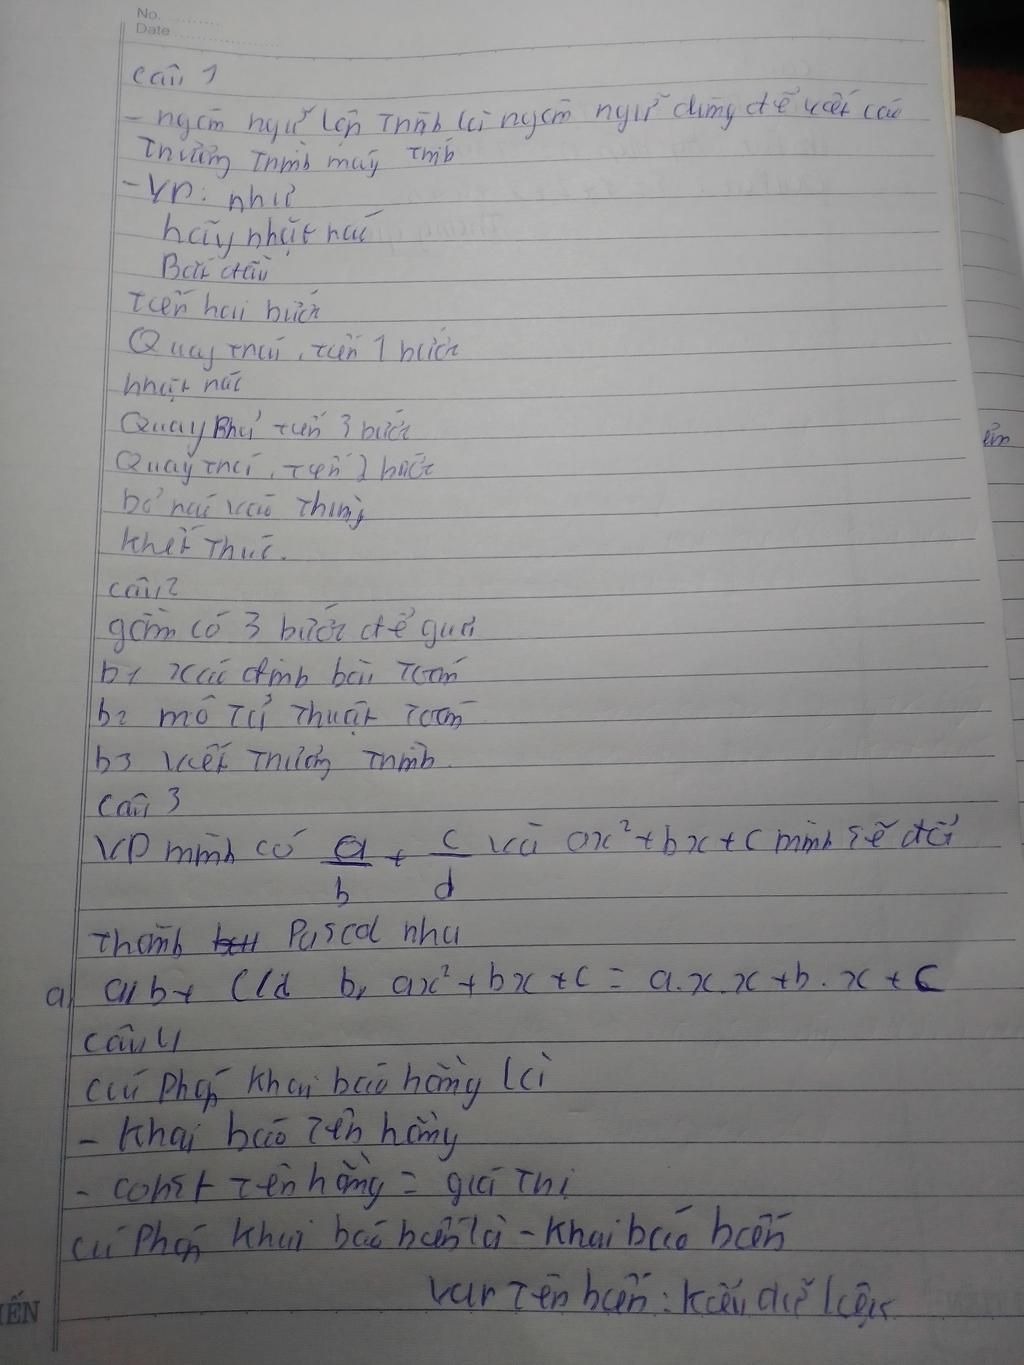 No.
Date
Câu 1
- ngôn ngữ lập trình là ngôn ngữ dùng để viết các
trương trình máy tính
- VD: như
hãy nhặt rác
Bắt đầu
tiến hai bước
Quay trái, tiến 1 bước
nhặt rác
Quay phải tiến 3 bước
Quay trái, tiến 2 bước
bỏ rác vào thùng
khết thúc.
câu 2
gồm có 3 bước để giải
b1 xác định bài toán
b2 mô tả thuật toán
b3 viết trương trình.
câu 3
VD mình có a/b + c/d và ax²+bx+c mình sẽ đổi
thành Pascal nha
a, a/b+ c/d b, ax²+bx+c = a.x.x+b.x+c
câu 4
cú pháp khai báo hằng là
- khai báo tên hằng
- const tên hằng = giá trị
cú pháp khai báo biến là - khai báo biến
var tên biến: kiểu dữ liệu.
IẾN